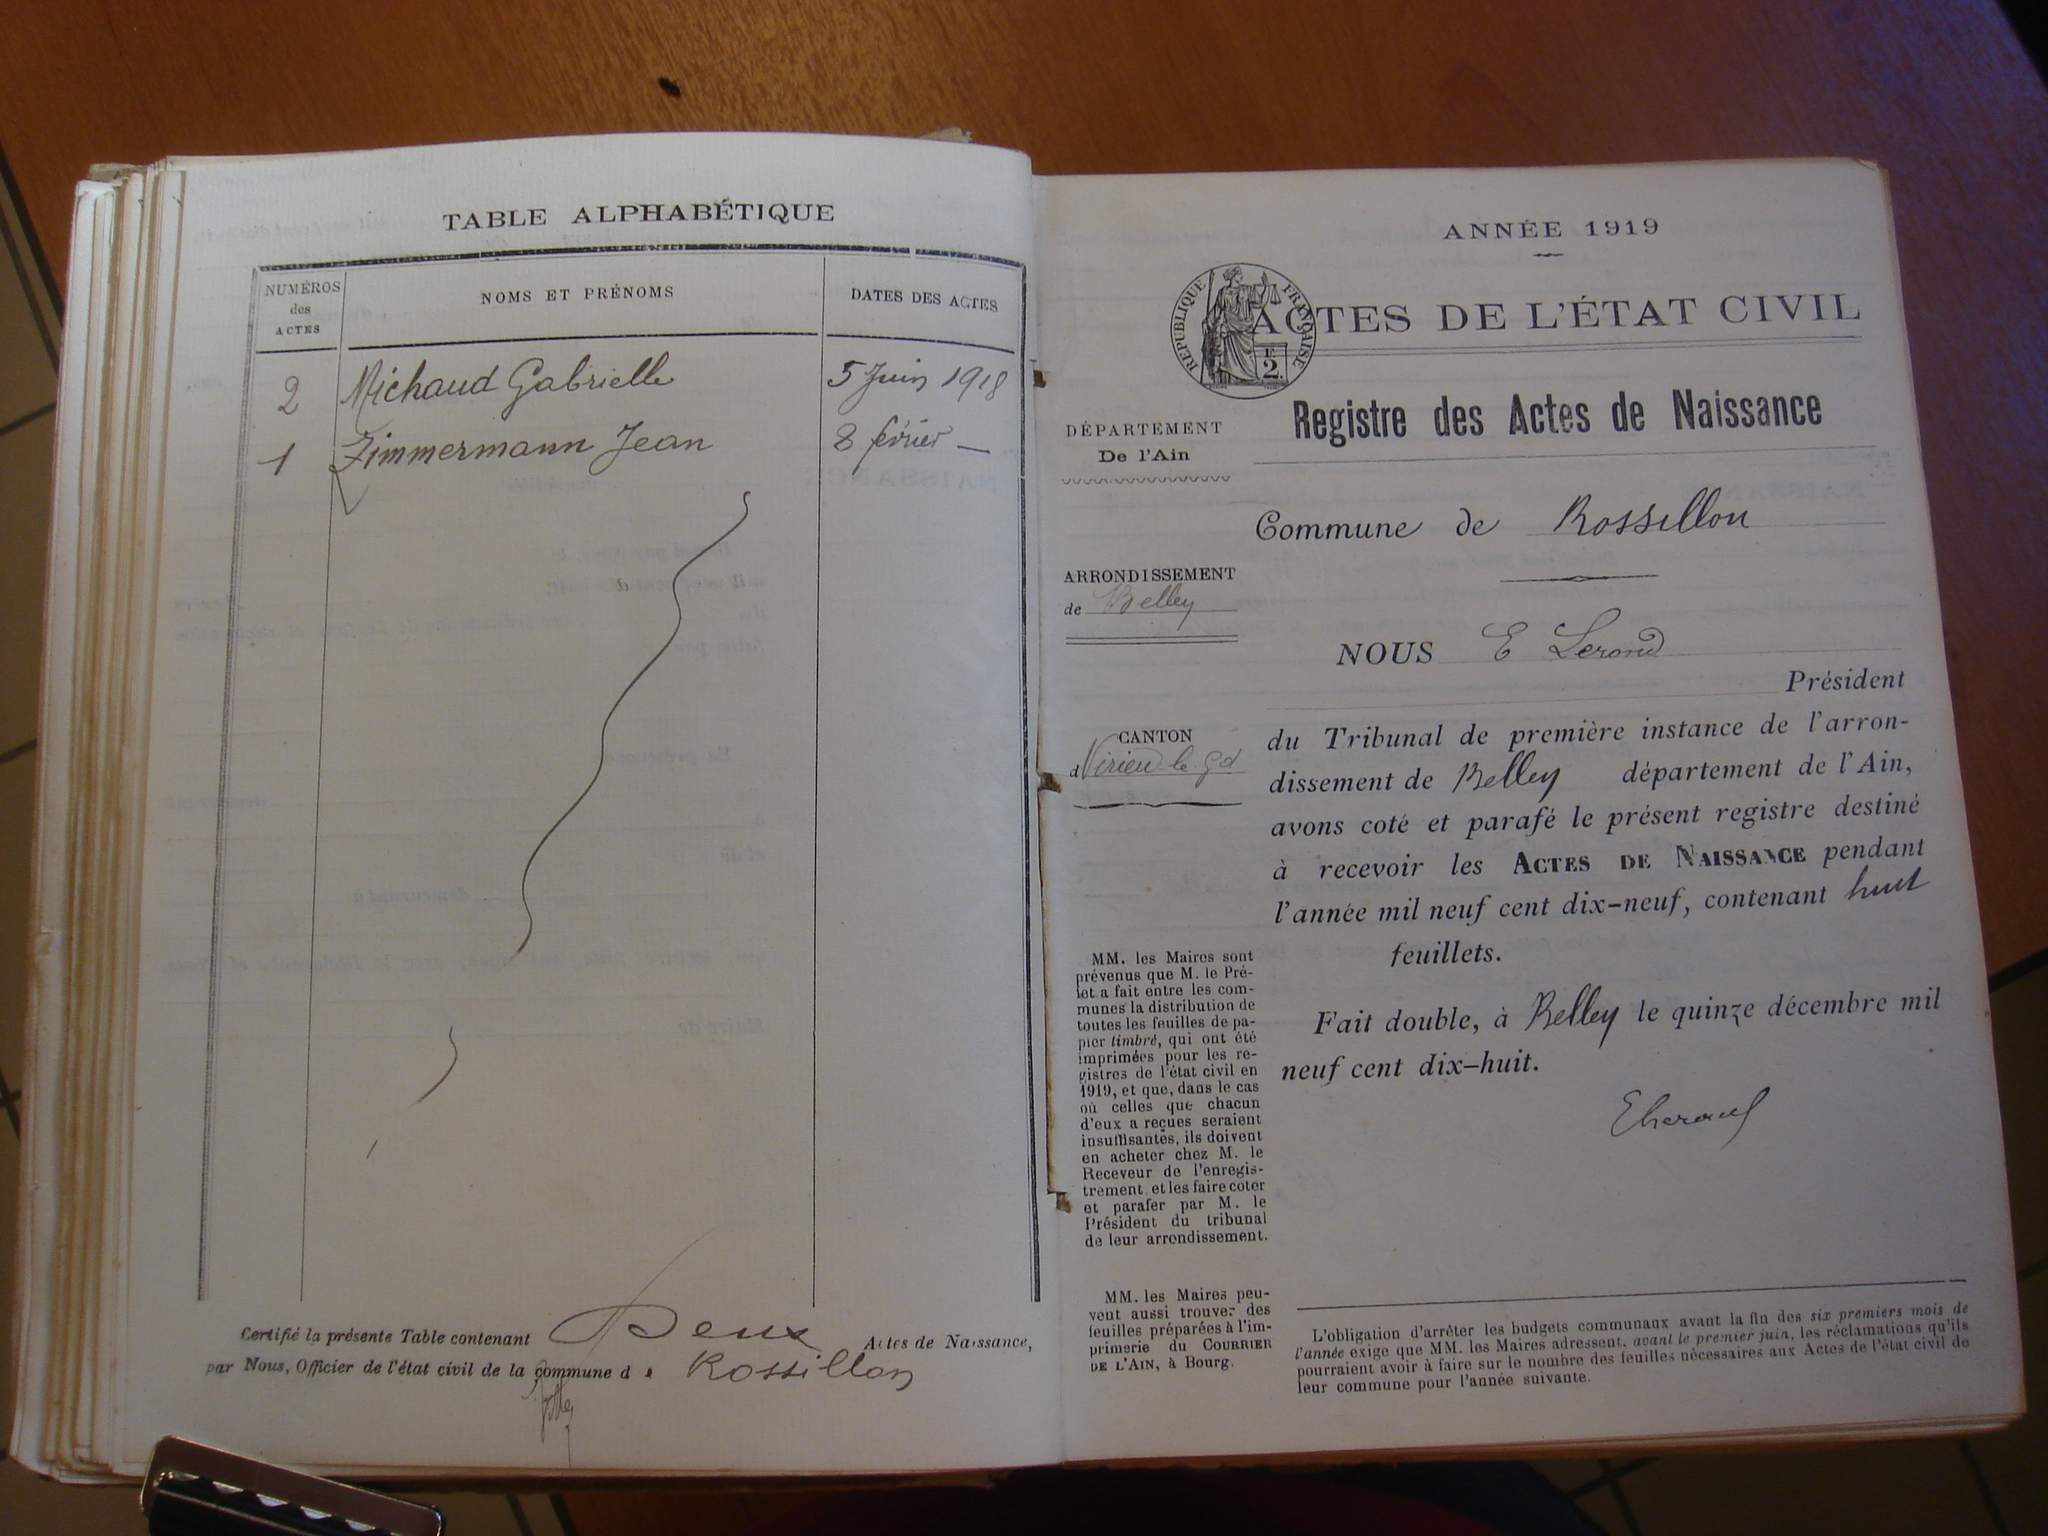 TABLE ALPHABÉTIQUE
NUMÉROS
des
ACTES
NOMS ET PRÉNOMS
DATES DES ACTES
2 Michaud Gabrielle 5 Juin 1918
1 Zimmermann Jean 8 février —
Certifié la présente Table contenant Deux Actes de Naissance,
par Nous, Officier de l'état civil de la commune d e Rossillon
ANNÉE 1919
RÉPUBLIQUE FRANÇAISE
2
ACTES DE L'ÉTAT CIVIL
Registre des Actes de Naissance
DÉPARTEMENT
De l'Ain
Commune de Rossillon
ARRONDISSEMENT
de Belley
NOUS E Lerond
Président
CANTON
d Virieu le Gd
du Tribunal de première instance de l'arron-
dissement de Belley département de l'Ain,
avons coté et parafé le présent registre destiné
à recevoir les ACTES DE NAISSANCE pendant
l'année mil neuf cent dix-neuf, contenant huit
feuillets.
Fait double, à Belley le quinze décembre mil
neuf cent dix-huit.
MM. les Maires sont
prévenus que M. le Pré-
fet a fait entre les com-
munes la distribution de
toutes les feuilles de pa-
pier timbré, qui ont été
imprimées pour les re-
gistres de l'état civil en
1919, et que, dans le cas
où celles que chacun
d'eux a reçues seraient
insuffisantes, ils doivent
en acheter chez M. le
Receveur de l'enregis-
trement, et les faire coter
et parafer par M. le
Président du tribunal
de leur arrondissement.
MM. les Maires peu-
vent aussi trouver des
feuilles préparées à l'im-
primerie du COURRIER
DE L'AIN, à Bourg.
L'obligation d'arrêter les budgets communaux avant la fin des six premiers mois de
l'année exige que MM. les Maires adressent, avant le premier juin, les réclamations qu'ils
pourraient avoir à faire sur le nombre des feuilles nécessaires aux Actes de l'état civil de
leur commune pour l'année suivante.